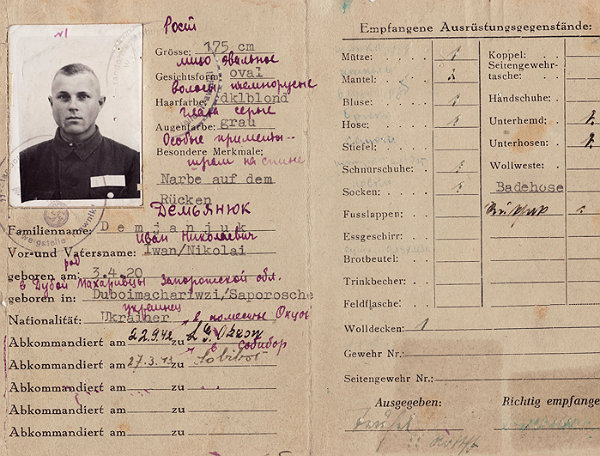 Рост
Grösse: 175 cm
лицо овальное
Gesichtsform: oval
волосы
Haarfarbe: dklblond
глаза серые
Augenfarbe: grau
Особые приметы
Besondere Merkmale:
шрам на спине
Narbe auf dem
Rücken
Демьянюк
Familienname: Demjanjuk
Иван Николаевич
Vor- und Vatersname: Iwan/Nikolai
род
geboren am: 3.4.20
в Запорожской обл.
geboren in: Duboimachariwzi/Saporosche
украинец
Nationalität: Ukrainer
Abkommandiert am 22.9.42 zu L.G.
в Собибор
Abkommandiert am 27.3.43 zu Sobibor
Abkommandiert am zu
Abkommandiert am zu
Abkommandiert am zu
Empfangene Ausrüstungsgegenstände:
Mütze: 1
Mantel:
Bluse: 1
Hose: 1
Stiefel:
Schnurschuhe: 1
Socken: 1
Fusslappen:
Essgeschirr:
Brotbeutel:
Trinkbecher:
Feldflasche:
Wolldecken: 1
Gewehr Nr.:
Seitengewehr Nr.:
Koppel:
Seitengewehr-
tasche:
Handschuhe:
Unterhemd:
Unterhosen:
Wollweste:
Badehose
Ausgegeben:
Richtig empfange